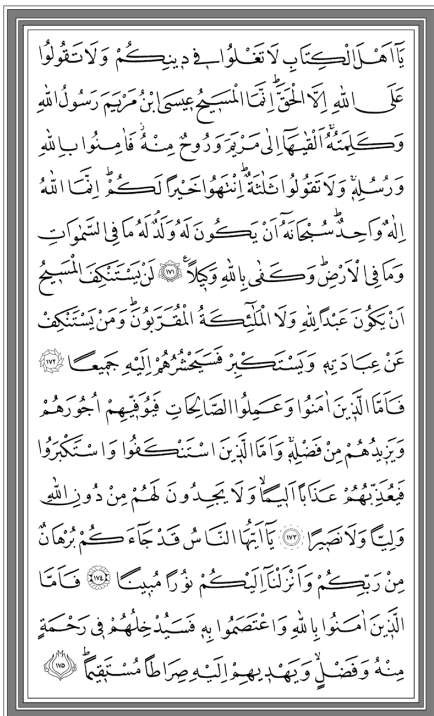 يَٓا اَهْلَ الْكِتَابِ لَا تَغْلُوا ف۪ي د۪ينِكُمْ وَلَا تَقُولُوا
عَلَى اللّٰهِ اِلَّا الْحَقَّۜ اِنَّمَا الْمَس۪يحُ ع۪يسَى ابْنُ مَرْيَمَ رَسُولُ اللّٰهِ
وَكَلِمَتُهُۚ اَلْقٰيهَٓا اِلٰى مَرْيَمَ وَرُوحٌ مِنْهُۘ فَاٰمِنُوا بِاللّٰهِ
وَرُسُلِه۪ۚ وَلَا تَقُولُوا ثَلٰثَةٌۜ اِنْتَهُوا خَيْرًا لَكُمْۜ اِنَّمَا اللّٰهُ
اِلٰهٌ وَاحِدٌۜ سُبْحَانَهُٓ اَنْ يَكُونَ لَهُ وَلَدٌۢ لَهُ مَا فِي السَّمٰوَاتِ
وَمَا فِي الْاَرْضِۜ وَكَفٰى بِاللّٰهِ وَك۪يلًا۟ ﴿١٧١﴾ لَنْ يَسْتَنْكِفَ الْمَس۪يحُ
اَنْ يَكُونَ عَبْدًا لِلّٰهِ وَلَا الْمَلٰٓئِكَةُ الْمُقَرَّبُونَۜ وَمَنْ يَسْتَنْكِفْ
عَنْ عِبَادَتِه۪ وَيَسْتَكْبِرْ فَسَيَحْشُرُهُمْ اِلَيْهِ جَم۪يعًا ﴿١٧٢﴾
فَاَمَّا الَّذ۪ينَ اٰمَنُوا وَعَمِلُوا الصَّالِحَاتِ فَيُوَفّ۪يهِمْ اُجُورَهُمْ
وَيَز۪يدُهُمْ مِنْ فَضْلِه۪ۚ وَاَمَّا الَّذ۪ينَ اسْتَنْكَفُوا وَاسْتَكْبَرُوا
فَيُعَذِّبُهُمْ عَذَابًا اَل۪يمًاۙ وَلَا يَجِدُونَ لَهُمْ مِنْ دُونِ اللّٰهِ
وَلِيًّا وَلَا نَص۪يرًا ﴿١٧٣﴾ يَٓا اَيُّهَا النَّاسُ قَدْ جَٓاءَكُمْ بُرْهَانٌ
مِنْ رَبِّكُمْ وَاَنْزَلْنَٓا اِلَيْكُمْ نُورًا مُب۪ينًا ﴿١٧٤﴾ فَاَمَّا
الَّذ۪ينَ اٰمَنُوا بِاللّٰهِ وَاعْتَصَمُوا بِه۪ فَسَيُدْخِلُهُمْ ف۪ي رَحْمَةٍ
مِنْهُ وَفَضْلٍۙ وَيَهْد۪يهِمْ اِلَيْهِ صِرَاطًا مُسْتَق۪يمًاۜ ﴿١٧٥﴾